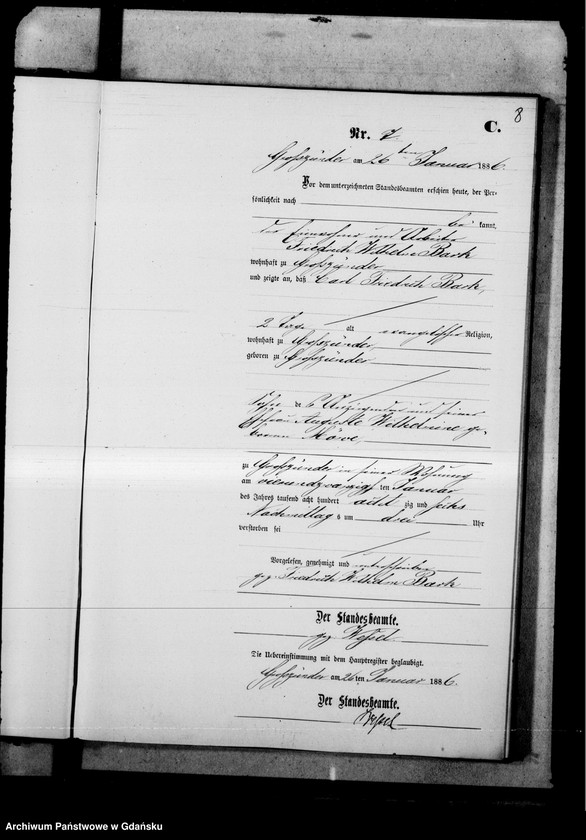 8
C.
Nr. 7
Großzünder am 26 ten Januar 1886.
Vor dem unterzeichneten Standesbeamten erschien heute, der Per-
sönlichkeit nach
be kannt,
der Einwohner und Arbeiter
Friedrich Wilhelm Bark
wohnhaft zu Großzünder
und zeigte an, daß Carl Friedrich Bark,
2 Tage alt evangelischer Religion,
wohnhaft zu Großzünder
geboren zu Großzünder
Sohn des Anzeigenden und seiner
Ehefrau Auguste Wilhelmine ge-
borenen
zu Großzünder in seiner Wohnung
am vierundzwanzigsten Januar
des Jahres tausend acht hundert acht zig und sechs
Nachmittags um drei Uhr
verstorben sei
Vorgelesen, genehmigt und unterschrieben
gez. Friedrich Wilhelm Bark
Der Standesbeamte.
gez. Wessel
Die Uebereinstimmung mit dem Hauptregister beglaubigt.
Großzünder am 26 ten Januar 1886.
Der Standesbeamte.
Wessel
Archiwum Państwowe w Gdańsku